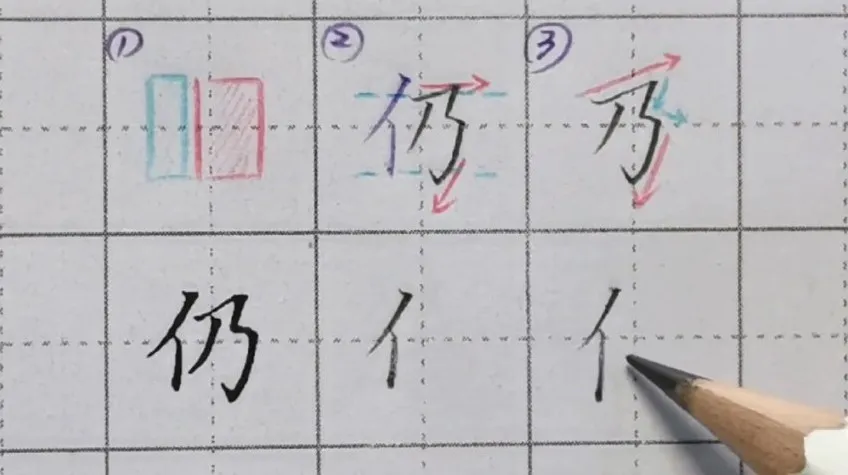 ① ② ③
仍 乃
仍 亻 亻